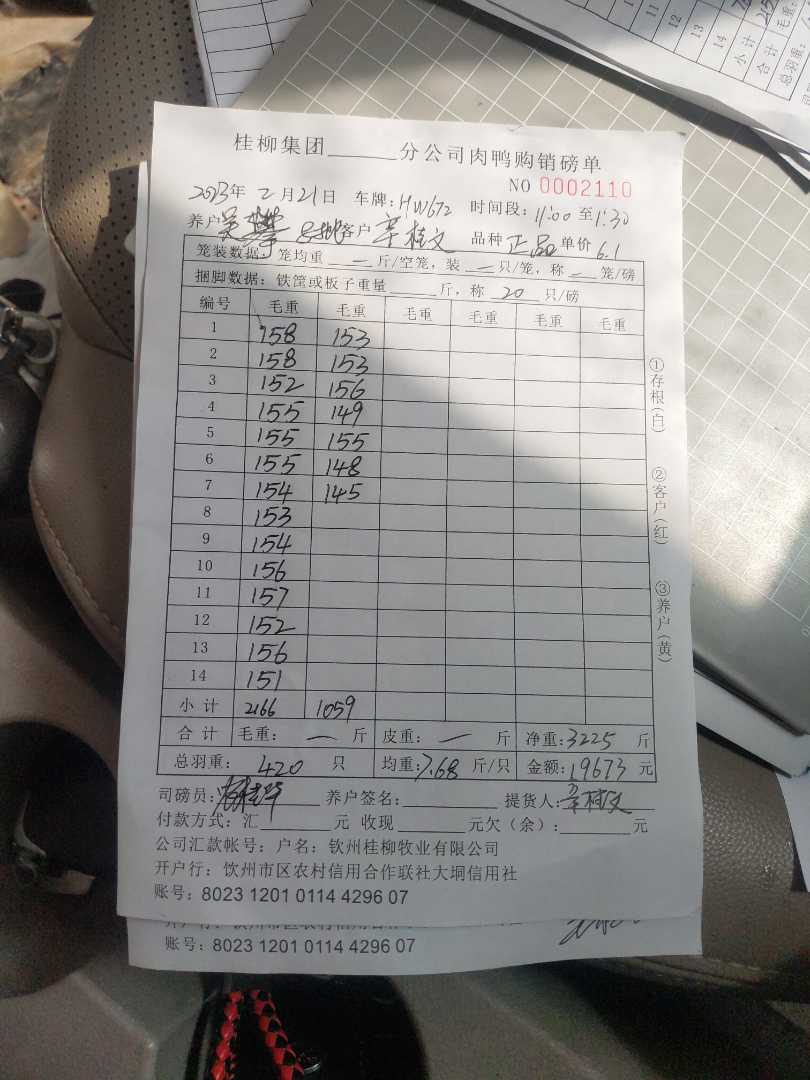 桂柳集团______分公司肉鸭购销磅单
NO 0002110
2023年2月21日 车牌:HW672 时间段:11:00至1:30
养户 客户 辛桂文 品种 正品 单价 6.1
笼装数据:笼均重 — 斤/空笼,装 — 只/笼,称 — 笼/磅
捆脚数据:铁筐或板子重量____斤,称 20 只/磅
编号 毛重 毛重 毛重 毛重 毛重 毛重
1 158 153
2 158 153
3 152 156
4 155 149
5 155 155
6 155 148
7 154 145
8 153
9 154
10 156
11 157
12 152
13 156
14 151
小计 2166 1059
合计 毛重: — 斤 皮重: — 斤 净重:3225 斤
总羽重: 420 只 均重:7.68 斤/只 金额:19673 元
司磅员: 养户签名:________ 提货人:辛桂文
付款方式:汇______元 收现______元欠(余):______元
公司汇款帐号:户名:钦州桂柳牧业有限公司
开户行:饮州市区农村信用合作联社大垌信用社
账号:8023 1201 0114 4296 07
①存根(白) ②客户(红) ③养户(黄)
账号:8023 1201 0114 4296 07
11
12
13
14
小计
合计
总羽重:
毛重: